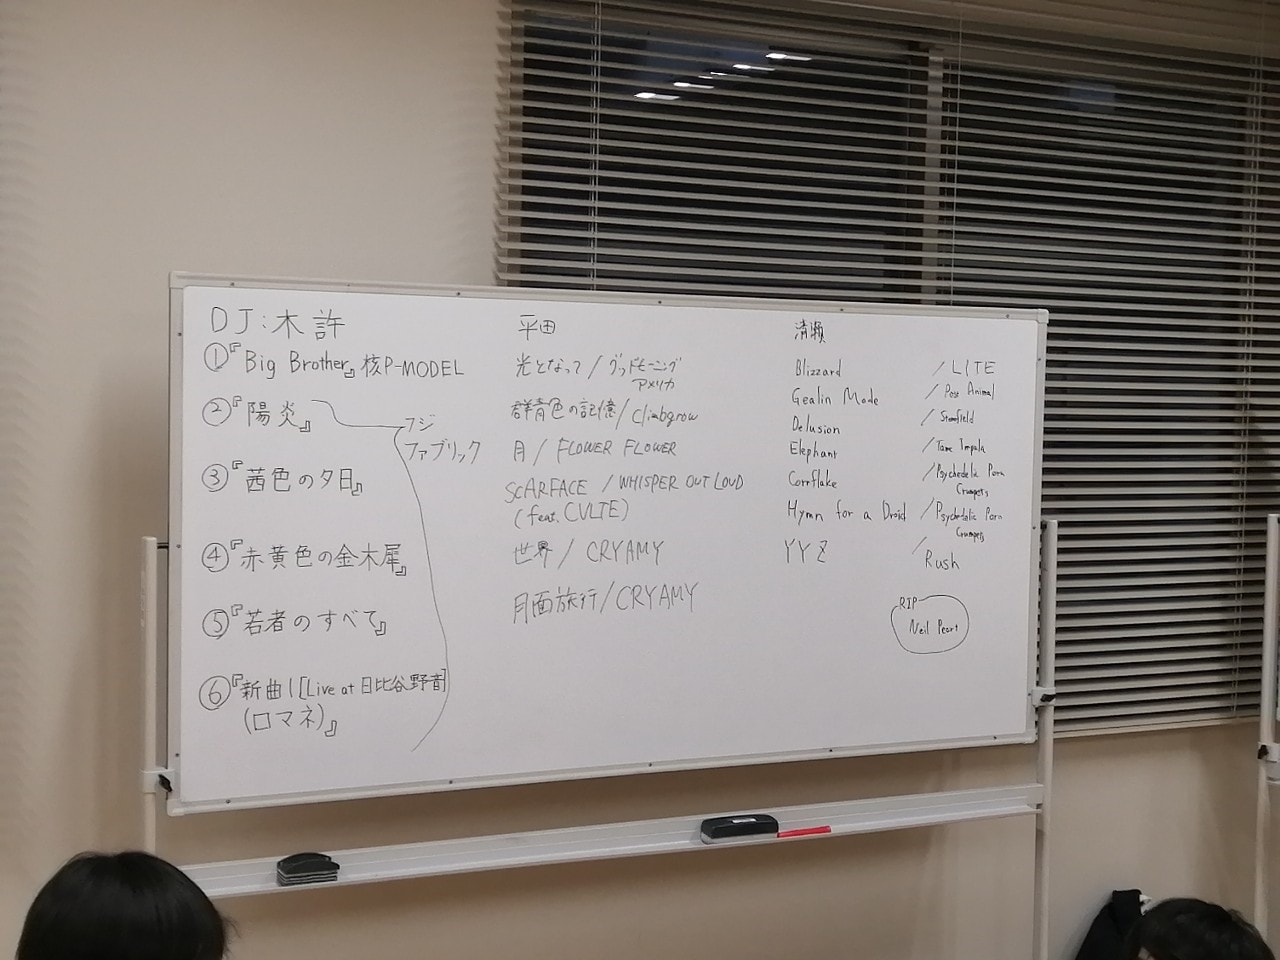 DJ:木許
①『Big Brother』核P-MODEL
②『陽炎』
フジ
ファブリック
③『茜色の夕日』
④『赤黄色の金木犀』
⑤『若者のすべて』
⑥『新曲1[Live at 日比谷野音]
(ロマネ)』
平田
光となって/グッドモーニング
アメリカ
群青色の記憶/climbgrow
月/FLOWER FLOWER
SCARFACE/WHISPER OUT LOUD
(feat. CVLTE)
世界/CRYAMY
月面旅行/CRYAMY
清瀬
Blizzard /LITE
Gealin Mode /Post Animal
Delusion /Stonefield
Elephant /Tame Impala
Cornflake /Psychedelic Porn
Crumpets
Hymn for a Droid /Psychedelic Porn
Crumpets
YYZ /Rush
RIP
Neil Peart